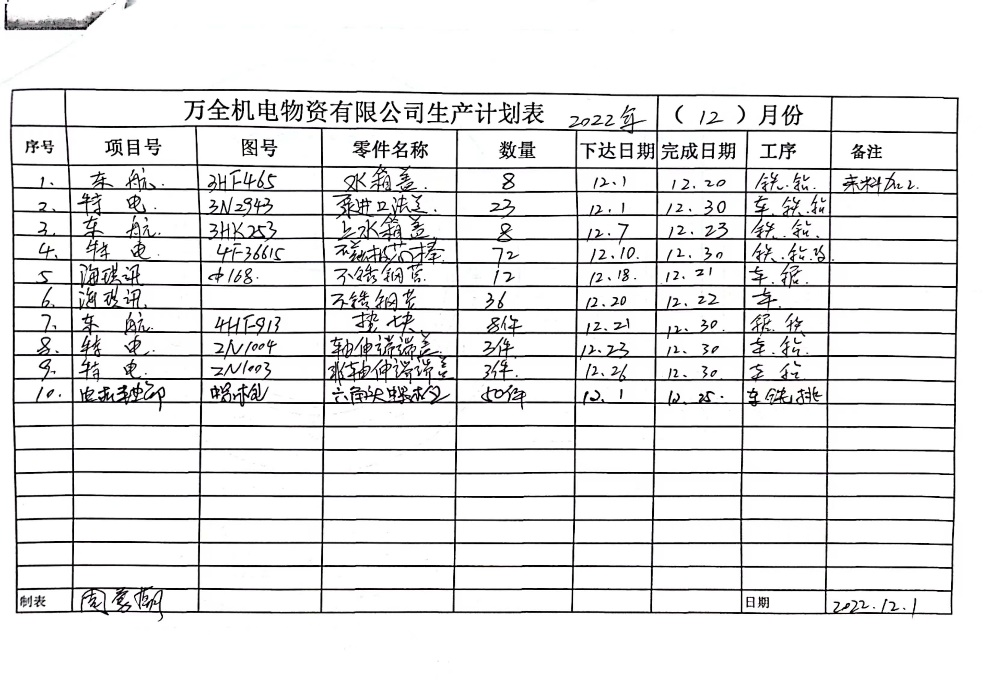 万全机电物资有限公司生产计划表 2022年 （12）月份
序号 项目号 图号 零件名称 数量 下达日期 完成日期 工序 备注
1. 东航. 3HT-465 水箱盖. 8 12.1 12.20 铣.钻. 来料加工.
2. 特电. 3N2943 泵进口法兰. 23 12.1 12.30 车.铣.钻
3. 东航 3HK253 上水箱盖 8 12.7 12.23 铣.钻.
4. 特电 4T-36615 芯棒 72 12.10. 12.30 铣.钻.
5 海琪讯 φ168. 不锈钢 12 12.18. 12.21 车.锯.
6. 海琪讯. 不锈钢 36 12.20 12.22 车.
7. 东航. 4HT-913 垫块 8件 12.21 12.30. 锯 铣
8. 特电. 2N1004 轴伸端端盖. 3件 12.23 12.30 车.钻.
9. 特电. 2N1003 非轴伸端端盖 3件. 12.26 12.30. 车 钻
10. 螺栓 六角头螺栓 50件 12.1 12.25. 车铣
制表 周 日期 2022.12.1